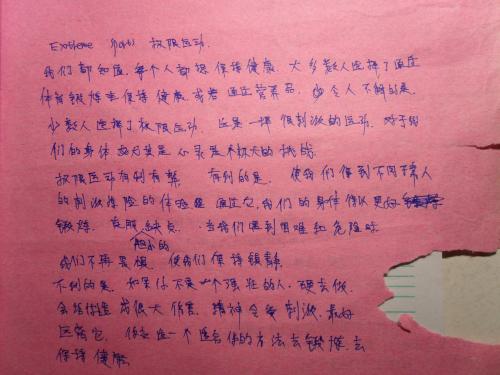 Extreme sports 极限运动.
我们都知道,每个人都想保持健康.大多数人选择了通过
体育锻炼去保持健康.或者通过营养品.令人不解的是.
少数人选择了极限运动.这是一项很刺激的运动.对于我
们的身体尤其是心灵是个极大的挑战.
极限运动有利有弊. 有利的是. 使我们得到不同常人
的刺激探险的体验是通过它,我们的身体得以更好
锻炼. 克服缺点. 当我们遇到困难和危险时
胆小的
我们不再畏惧. 使我们保持镇静.
不利的是. 如果你不是一个强壮的人.硬去做.
会给你造成很大伤害. 精神会受刺激.最好
远离它. 你去选一个适合你的方法去锻炼.去
保持健康.